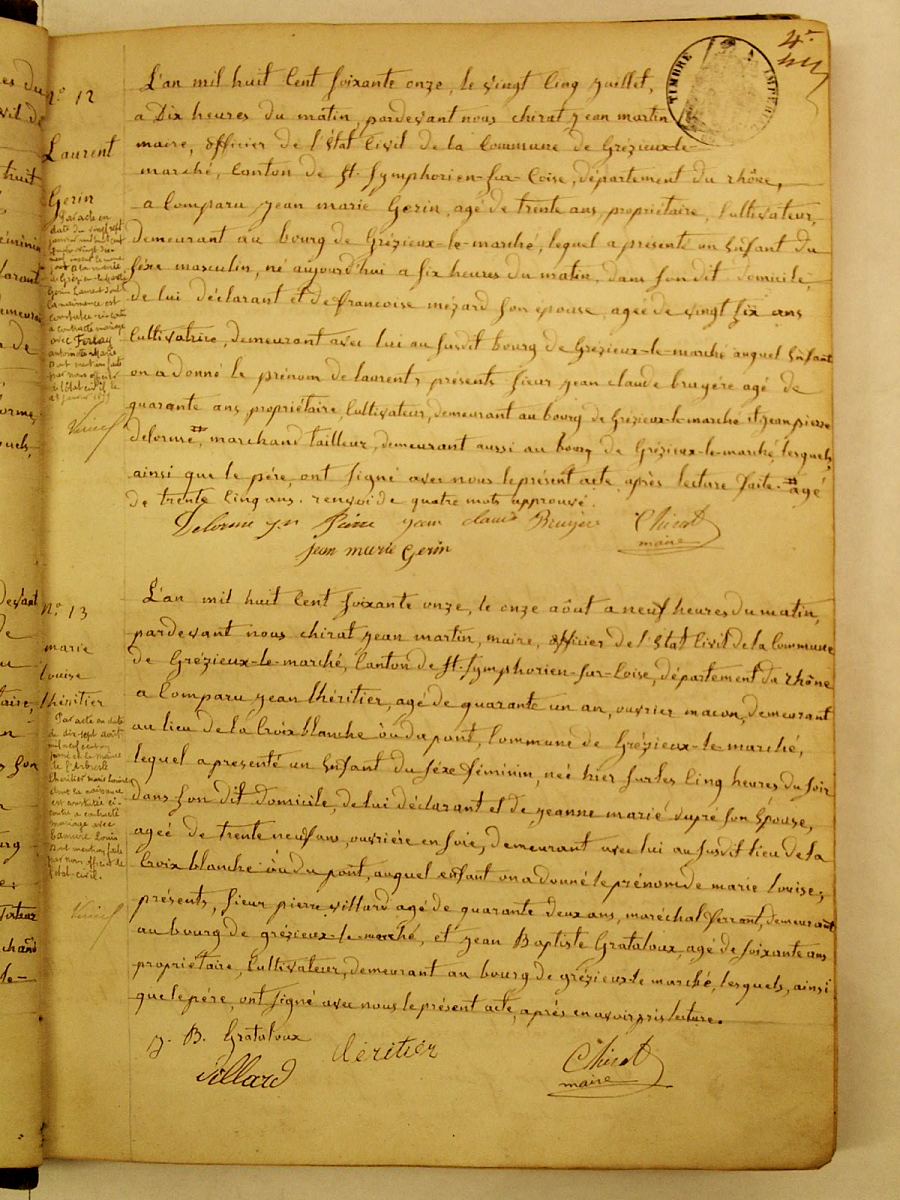 4e
TIMBRE IMPERIAL
No. 12
Laurent
Gerin
Par acte en
date du vingt sept
janvier mil huit cent
quatre vingt dix
neuf
Gerin Laurent dont
la naissance est
constatée ci-contre
a contracté mariage
avec Ferlay
dont mention faite
par nous officier
de l'état civil le
L'an mil huit Cent soixante onze, le vingt Cinq juillet,
a Dix heures du matin, pardevant nous chirat jean martin
maire, officier de l'Etat Civil de la Commune de Grézieux-le-
marché, Canton de St. Symphorien-sur-Coise, département du rhône,
a Comparu jean marie Gerin, agé de trente ans, propriétaire, Cultivateur,
demeurant au bourg de Grézieux-le-marché, lequel a présenté un Enfant du
séxe masculin, né aujourd'hui a six heures du matin, dans son dit domicile,
de lui déclarant et de francoise mézard son épouse, agée de vingt six ans
Cultivatrice, demeurant avec lui au susdit bourg de Grézieux-le-marché auquel Enfant
on a donné le prénom de laurent, présents sieur jean claude bruyére agé de
quarante ans, propriétaire, Cultivateur, demeurant au bourg de Grézieux-le-marché et jean pierre
delorme #, marchand tailleur, demeurant aussi au bourg de Grézieux-le-marché, lesquels,
ainsi que le pére, ont signé avec nous le présent acte après lecture faite. # agé
de trente Cinq ans. renvoi de quatre mots approuvé.
Delorme jn Pierre jean claude Bruyere Chirat
maire
jean marie Gerin
No. 13
marie
louise
lhéritier
Par acte en date
du dix sept août
mil neuf cent
passé en la mairie
de l'Arbresle
Lhéritier Marie Louise
dont la naissance
est constatée ci-
contre a contracté
mariage avec
Louis
Dont mention faite
par nous officier de
l'état-civil.
L'an mil huit Cent soixante onze, le onze aôut a neuf heures du matin,
pardevant nous chirat jean martin, maire, officier de l'Etat Civil de la Commune
de Grézieux-le-marché, Canton de St. Symphorien-sur-Coise, département du rhône
a Comparu jean lhéritier, agé de quarante un an, ouvrier macon, demeurant
au lieu de la Croix blanche ôu du pont, Commune de Grézieux-le-marché,
lequel a présenté un Enfant du séxe féminin, née hier sur les Cinq heures du soir
dans son dit domicile, de lui déclarant et de jeanne marie dupré son Epouse,
agée de trente neuf ans, ouvrière en soie, demeurant avec lui au susdit lieu de la
Croix blanche ôu du pont, auquel enfant on a donné le prénom de marie louise;
présents, sieur pierre villard agé de quarante deux ans, maréchal ferrant, demeurant
au bourg de grézieux-le-marché, et jean Baptiste Grataloux, agé de soixante ans
propriétaire, Cultivateur, demeurant au bourg de grézieux-le marché, lesquels, ainsi
que le pére, ont signé avec nous le présent acte, après en avoir pris lecture.
j. B. Grataloux
léritier
Villard
Chirat
maire